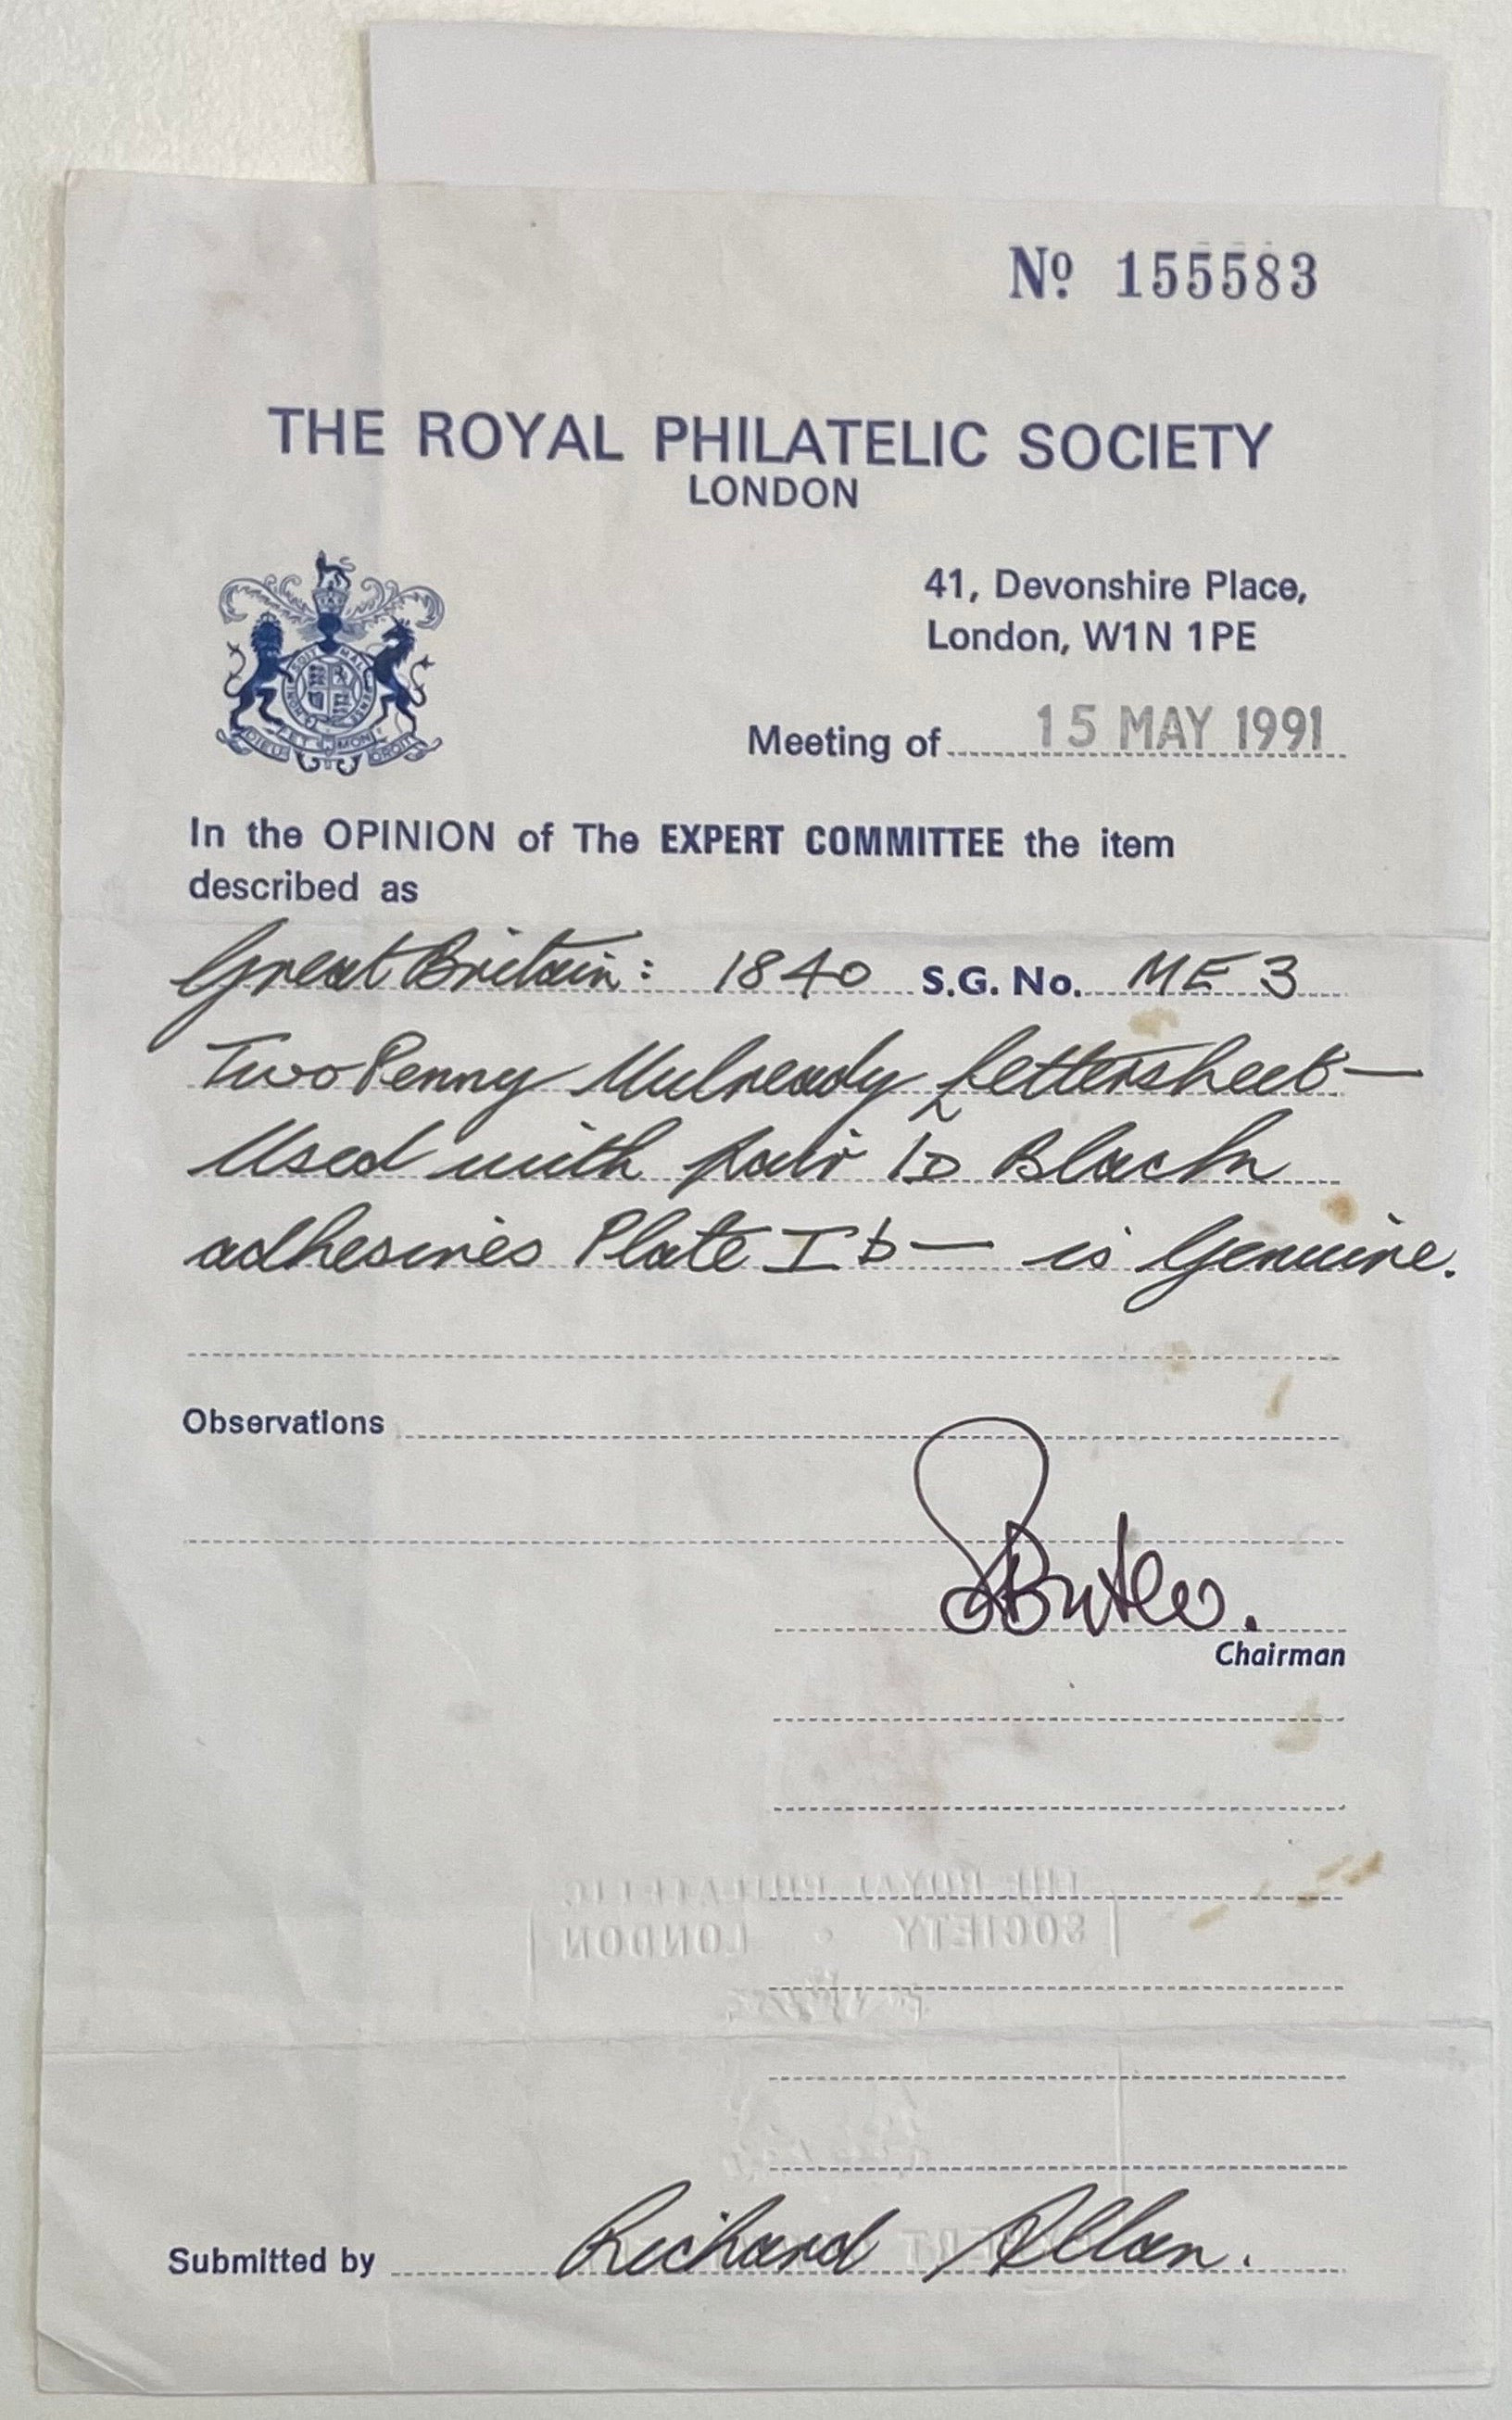 Nº 155583
THE ROYAL PHILATELIC SOCIETY
LONDON
41, Devonshire Place,
London, W1N 1PE
HONI SOIT QUI MAL Y PENSE
DIEU ET MON DROIT
Meeting of 15 MAY 1991
In the OPINION of The EXPERT COMMITTEE the item
described as
Great Britain: 1840 S.G. No. ME 3
Two Penny Mulready Lettersheet —
Used with pair 1D Black
adhesives Plate I b — is Genuine.
Observations
Butler.
Chairman
THE ROYAL PHILATELIC
SOCIETY • LONDON
Submitted by Richard Allan.